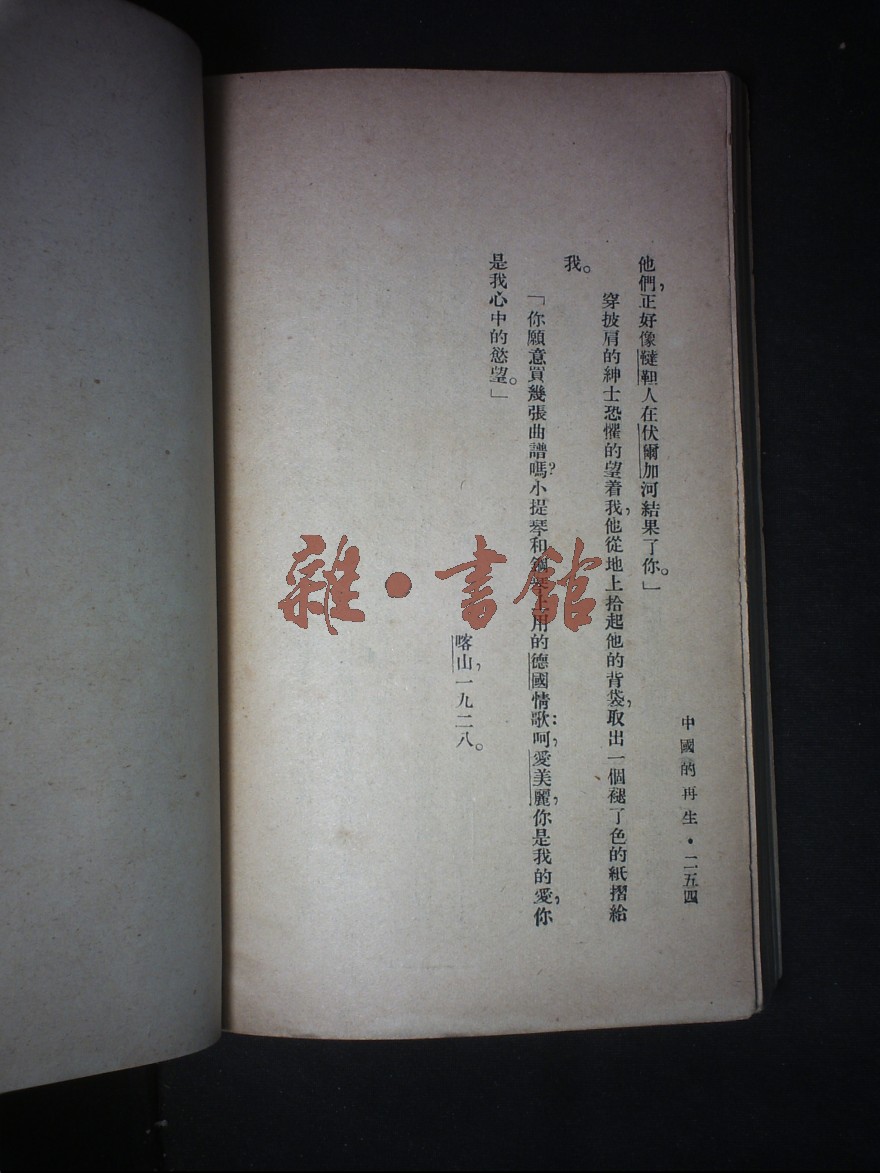 中國的再生・二五四
他們,正好像韃靼人在伏爾加河結果了你。」
穿披肩的紳士恐懼的望着我,他從地上拾起他的背袋,取出一個褪了色的紙摺給
我。
「你願意買幾張曲譜嗎?小提琴和鋼琴上用的德國情歌:呵,愛美麗,你是我的愛,你
是我心中的慾望。」
喀山,一九二八。
雜・書館